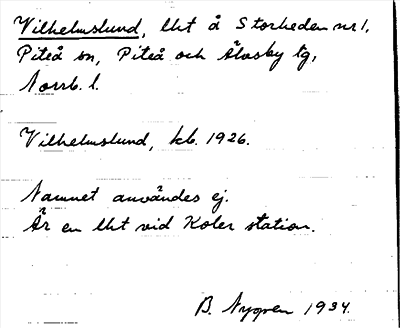 Vilhelmslund, lht å Storheden nr 1,
Piteå sn, Piteå och Älvsby tg,
Norrb. l.
Vilhelmslund, kb. 1926.
Namnet användes ej.
Är en lht vid Koler station.
B. Nygren 1934.